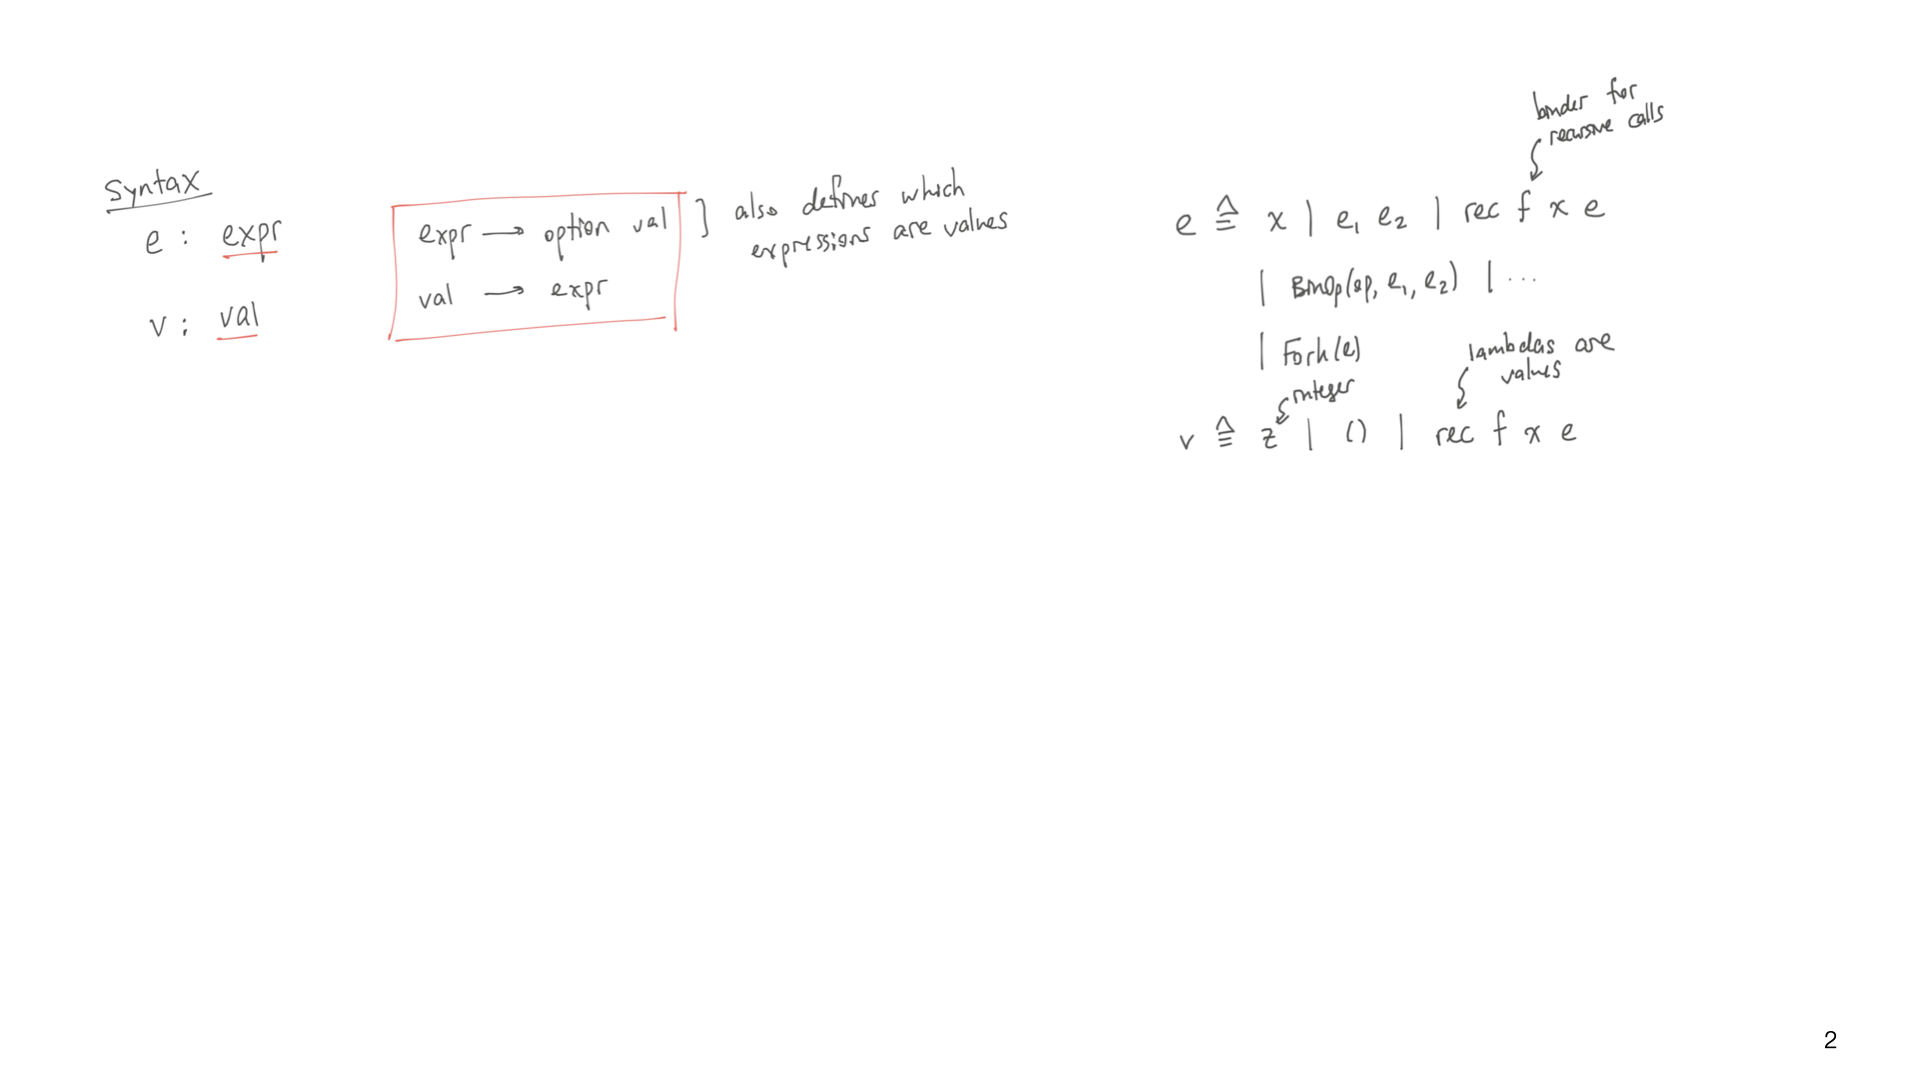 Syntax
e : expr
v : val
expr → option val
val → expr
] also defines which
expressions are values
binder for
recursive calls
e ≙ x | e₁ e₂ | rec f x e
| BinOp(op, e₁, e₂) | ...
| Fork(e)
integer
lambdas are
values
v ≙ z | () | rec f x e
2